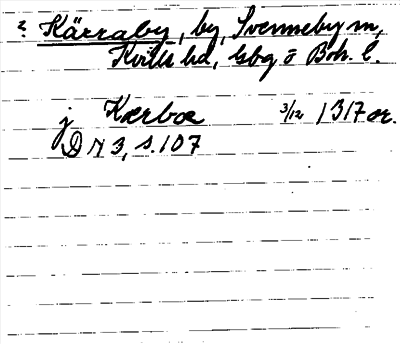 ? Kärraby, by, Svenneby sn,
Kville hd, Gbg o Boh. l.
j Kærbœ 3/12 1317 or.
DN 3, s. 107